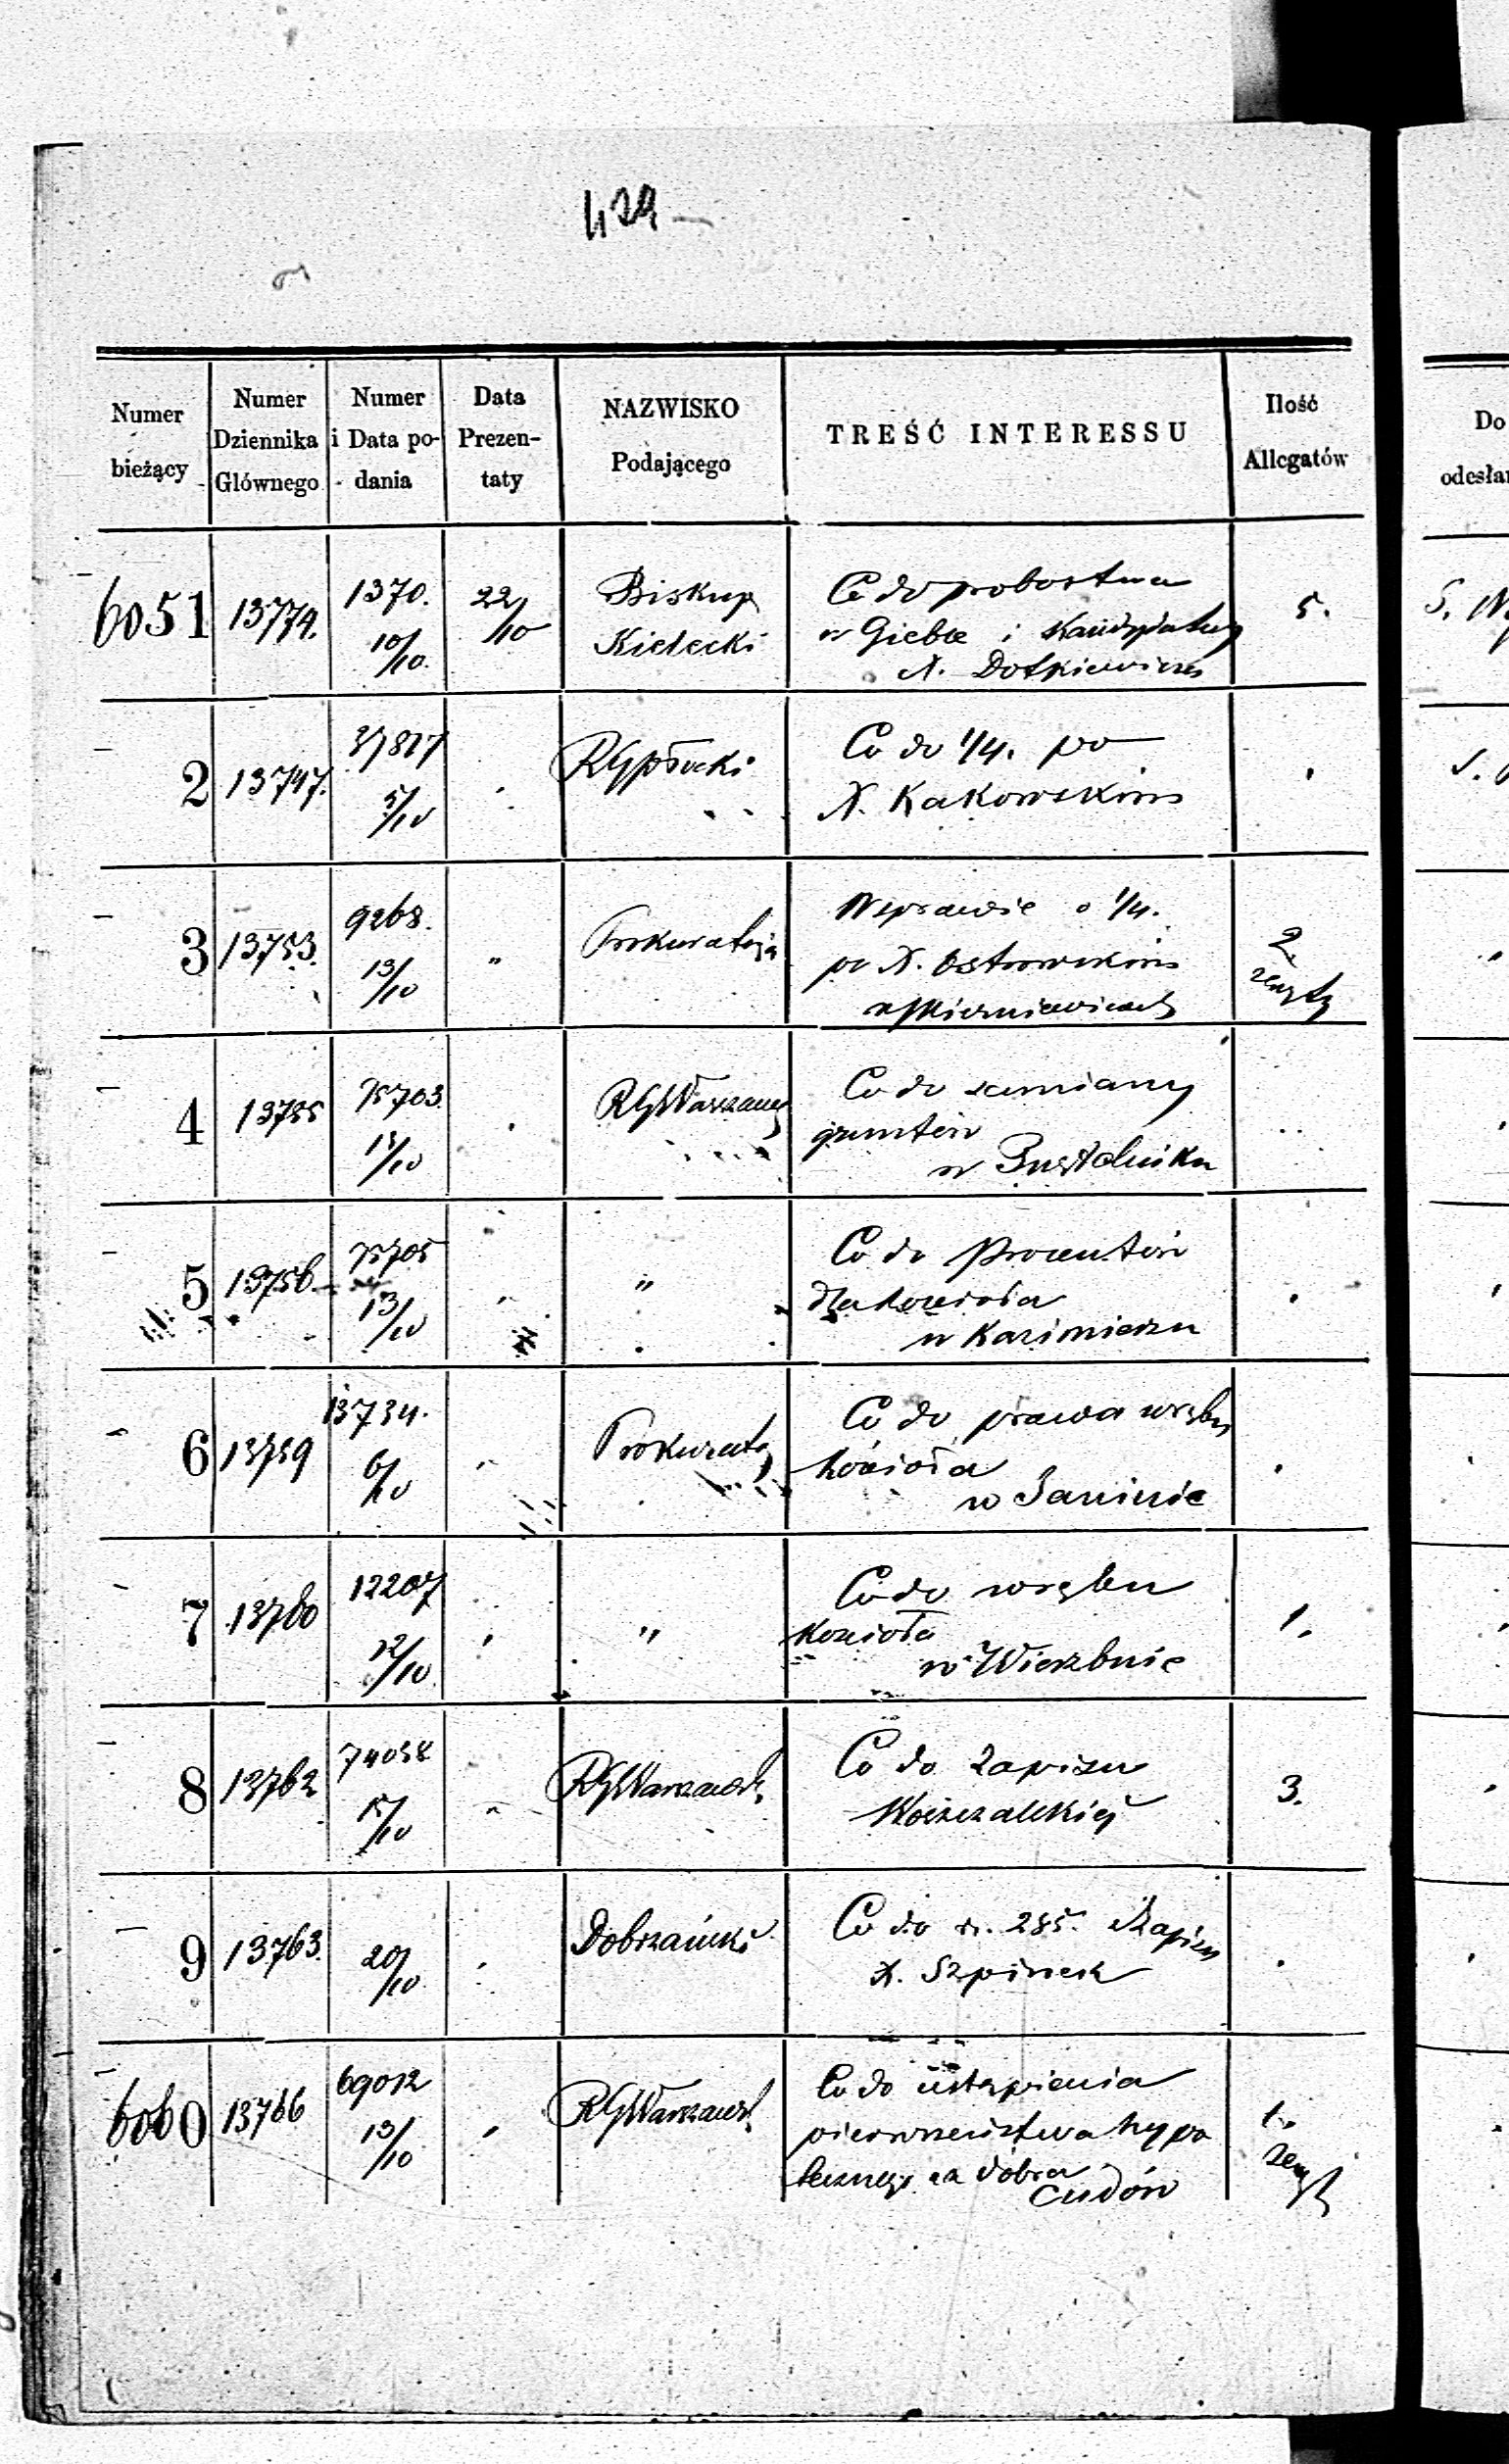 429 —
Numer bieżący
Numer Dziennika Głównego
Numer i Data podania
Data Prezentaty
NAZWISKO Podającego
TREŚĆ INTERESSU
Ilość Allegatów
Do
6051 13774. 1370. 10/10. 22/10 Biskup Kielecki 5.
Co do probostwa
w Gieble i Kandydatury
X. Dotkiewicza
2 13747. 5/10 RGPłocki
Co do 1/4. po
X. Kakowskim
3 13753. 9268. 13/10 " Prokuratorja 2 zeszyty
W sprawie o 1/4.
po X. Ostrowskim
w Skierniewicach
4 13755 75703. 13/10 RGWarszaws
Co do zamiany
gruntów
w Pustelniku
5 13756 75705 13/10 "
Co do Procentów
dla kościoła
w Kazimierzu
6 13759 13734. 6/10 Prokurato
Co do prawa wrębu
kościoła
w Janinie
7 13760 12207 12/10 " 1.
Co do wrębu
kościoła
w Wierzbnie
8 13762 74058 15/10 RGWarszawsk 3.
Co do Zapisu
9 13763. 20/10 Dobrzański
Co do r. 285. Zapisu
X. Szpinek
6060 13766 69012 13/10 RGWarszawsk 1. zeszyt
Co do ustąpienia
pierwszeństwa hypo
tecznego na dobra
Cudów